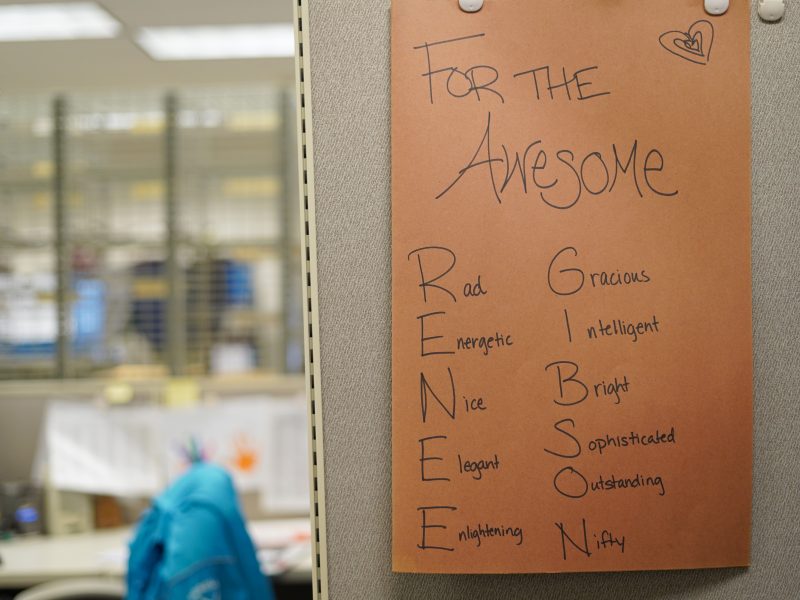 FOR THE
AWESOME
Rad
Energetic
Nice
Elegant
Enlightening
Gracious
Intelligent
Bright
Sophisticated
Outstanding
Nifty